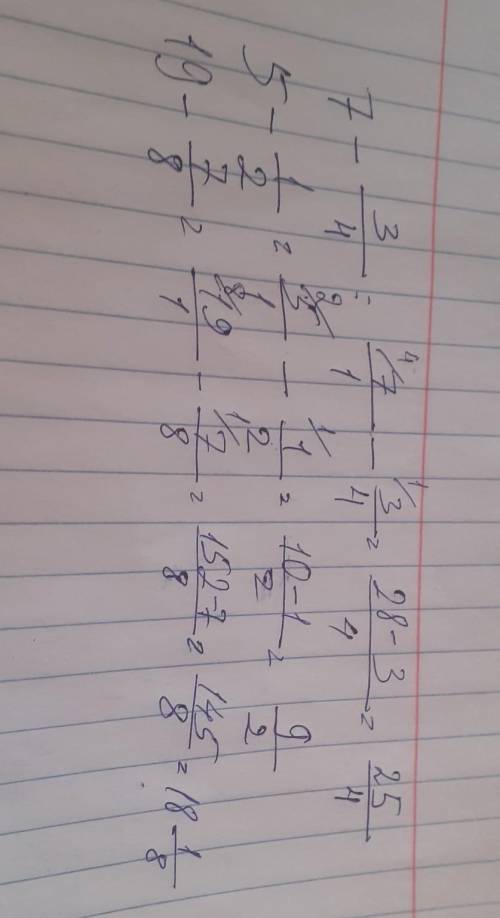 7 - 3/4 = ⁴/7/1 - ¹/3/4 = 28-3/4 = 25/4
5 - 1/2 = ²/5/1 - ¹/1/2 = 10-1/2 = 9/2
19 - 7/8 = ⁸/19/1 - ¹/7/8 = 152-7/8 = 145/8 = 18 1/8